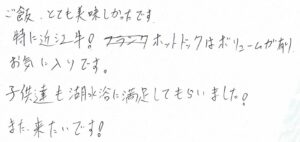 ご飯、とても美味しかったです
特に近江牛! ホットドックはボリュームが有り
お気に入りです。
子供達も湖水浴に満足してもらいました!
また来たいです!